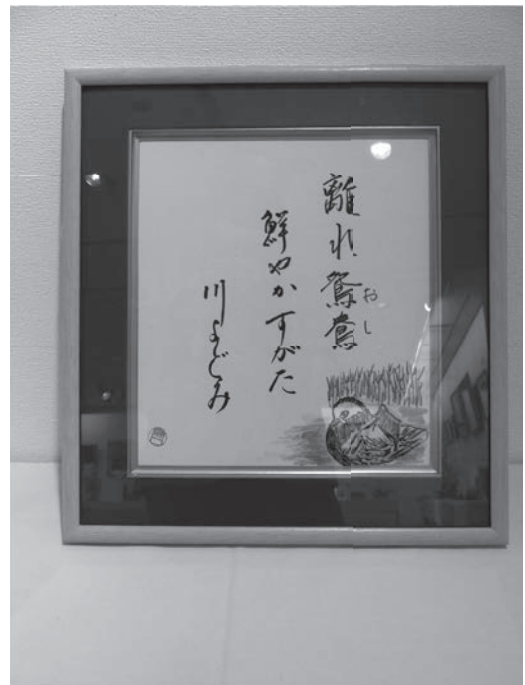 離れ鴛鴦
おし
鮮やかすがた
川よどみ